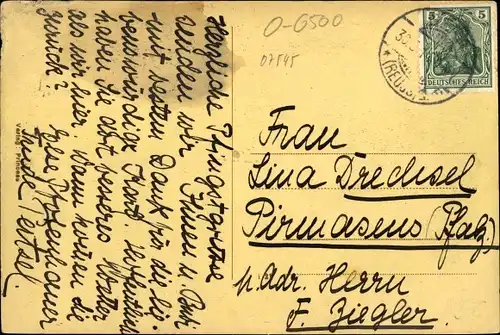 Herzliche Pfingstgrüsse
senden wir Ihnen u.
mit bestem Dank für die lie-
benswürdige Karte. Hoffentlich
haben Sie dort besseres Wetter
als wir hier. Wann kommen Sie
zurück?
Else
Verlag
O-6500
07545
5 5
DEUTSCHES REICH
(REUSS)
Frau
Lina Drechsel
Pirmasens (Pfalz)
p. Adr. Herrn
F. Ziegler.